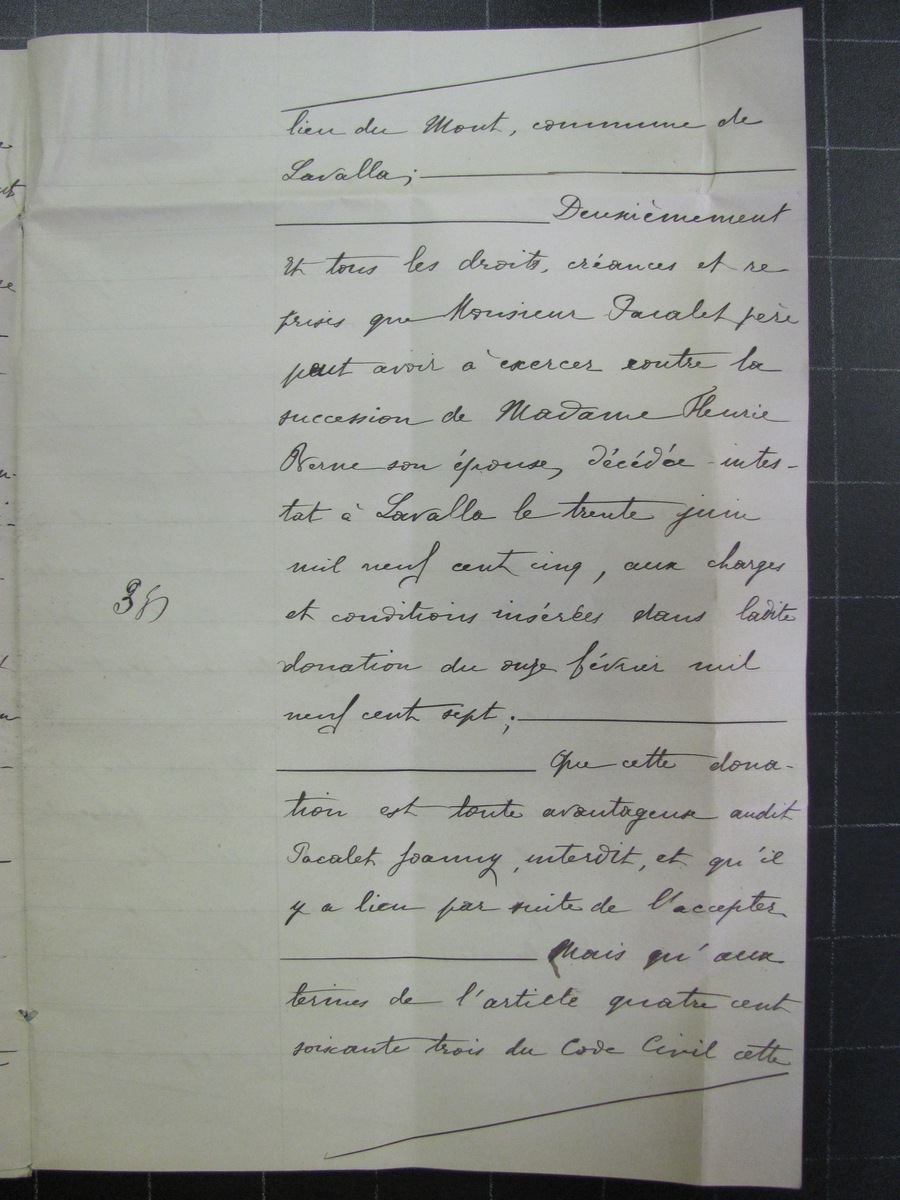 lieu du Mont, commune de
Lavalla;
Deuxièmement
Et tous les droits, créances et re
prises que Monsieur Pacalet père
peut avoir à exercer contre la
succession de Madame Fleurie
Verne son épouse, décédée intes-
tat à Lavalla le trente juin
mil neuf cent cinq, aux charges
et conditions insérées dans ladite
donation du onze février mil
neuf cent sept;
Que cette dona-
tion est toute avantageuse audit
Pacalet Joanny, interdit, et qu'il
y a lieu par suite de l'accepter
Mais qu'aux
termes de l'article quatre cent
soixante trois du Code Civil cette